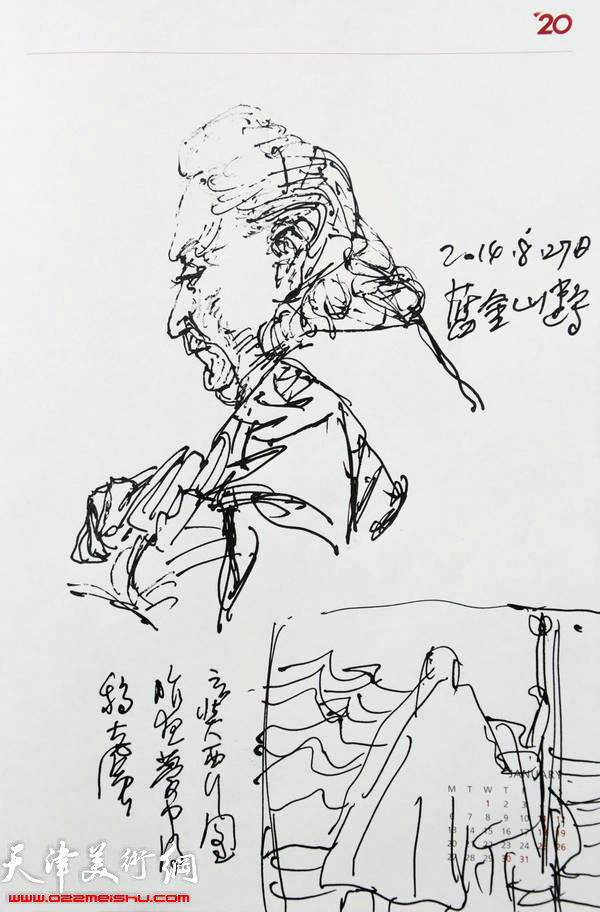 '20
2014.8.27日
舊金山
玄奘西行图
昨夜梦中
JANUARY
M T W T
1 2 3
6 7 8 9 10 11 12
13 14 15 16 17 18 19
20 21 22 23 24 25 26
27 28 29 30 31
天津美術網
www.022meishu.com